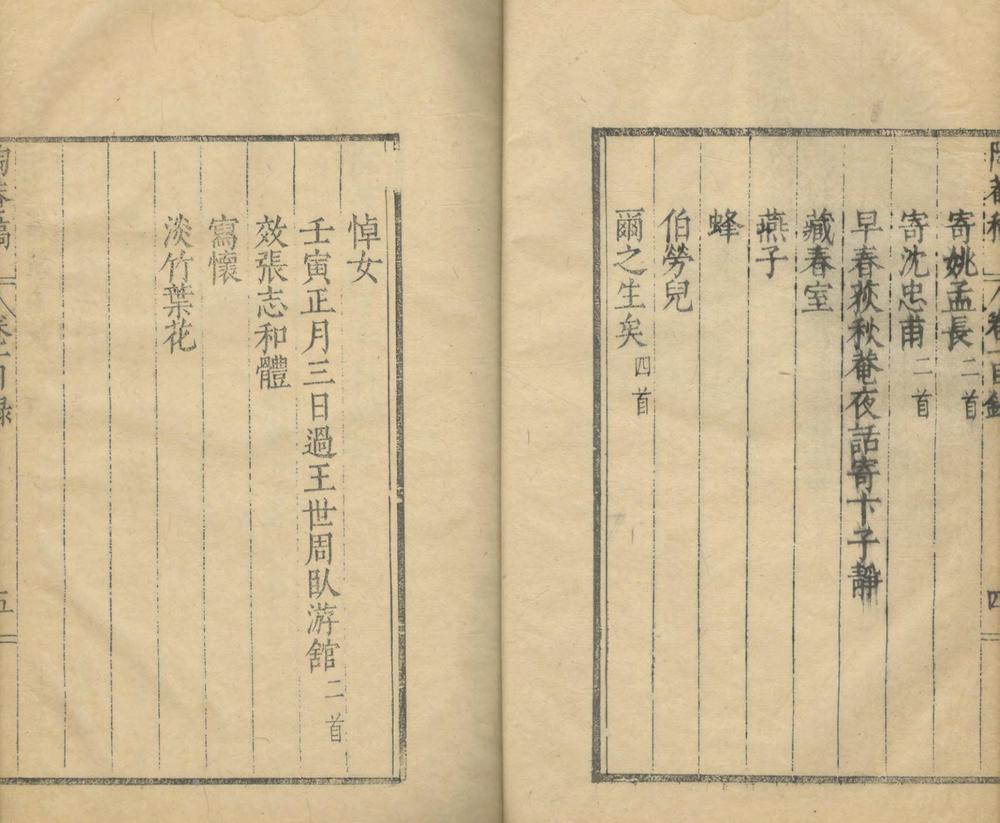 陶菴稿 卷一目錄 四
寄姚孟長二首
寄沈忠甫二首
早春荻秋菴夜話寄卞子靜
藏春室
燕子
蜂
伯勞兒
爾之生矣四首
悼女
壬寅正月三日過王世周臥游館二首
效張志和體
寫懷
淡竹葉花
陶菴稿 卷一目錄 五